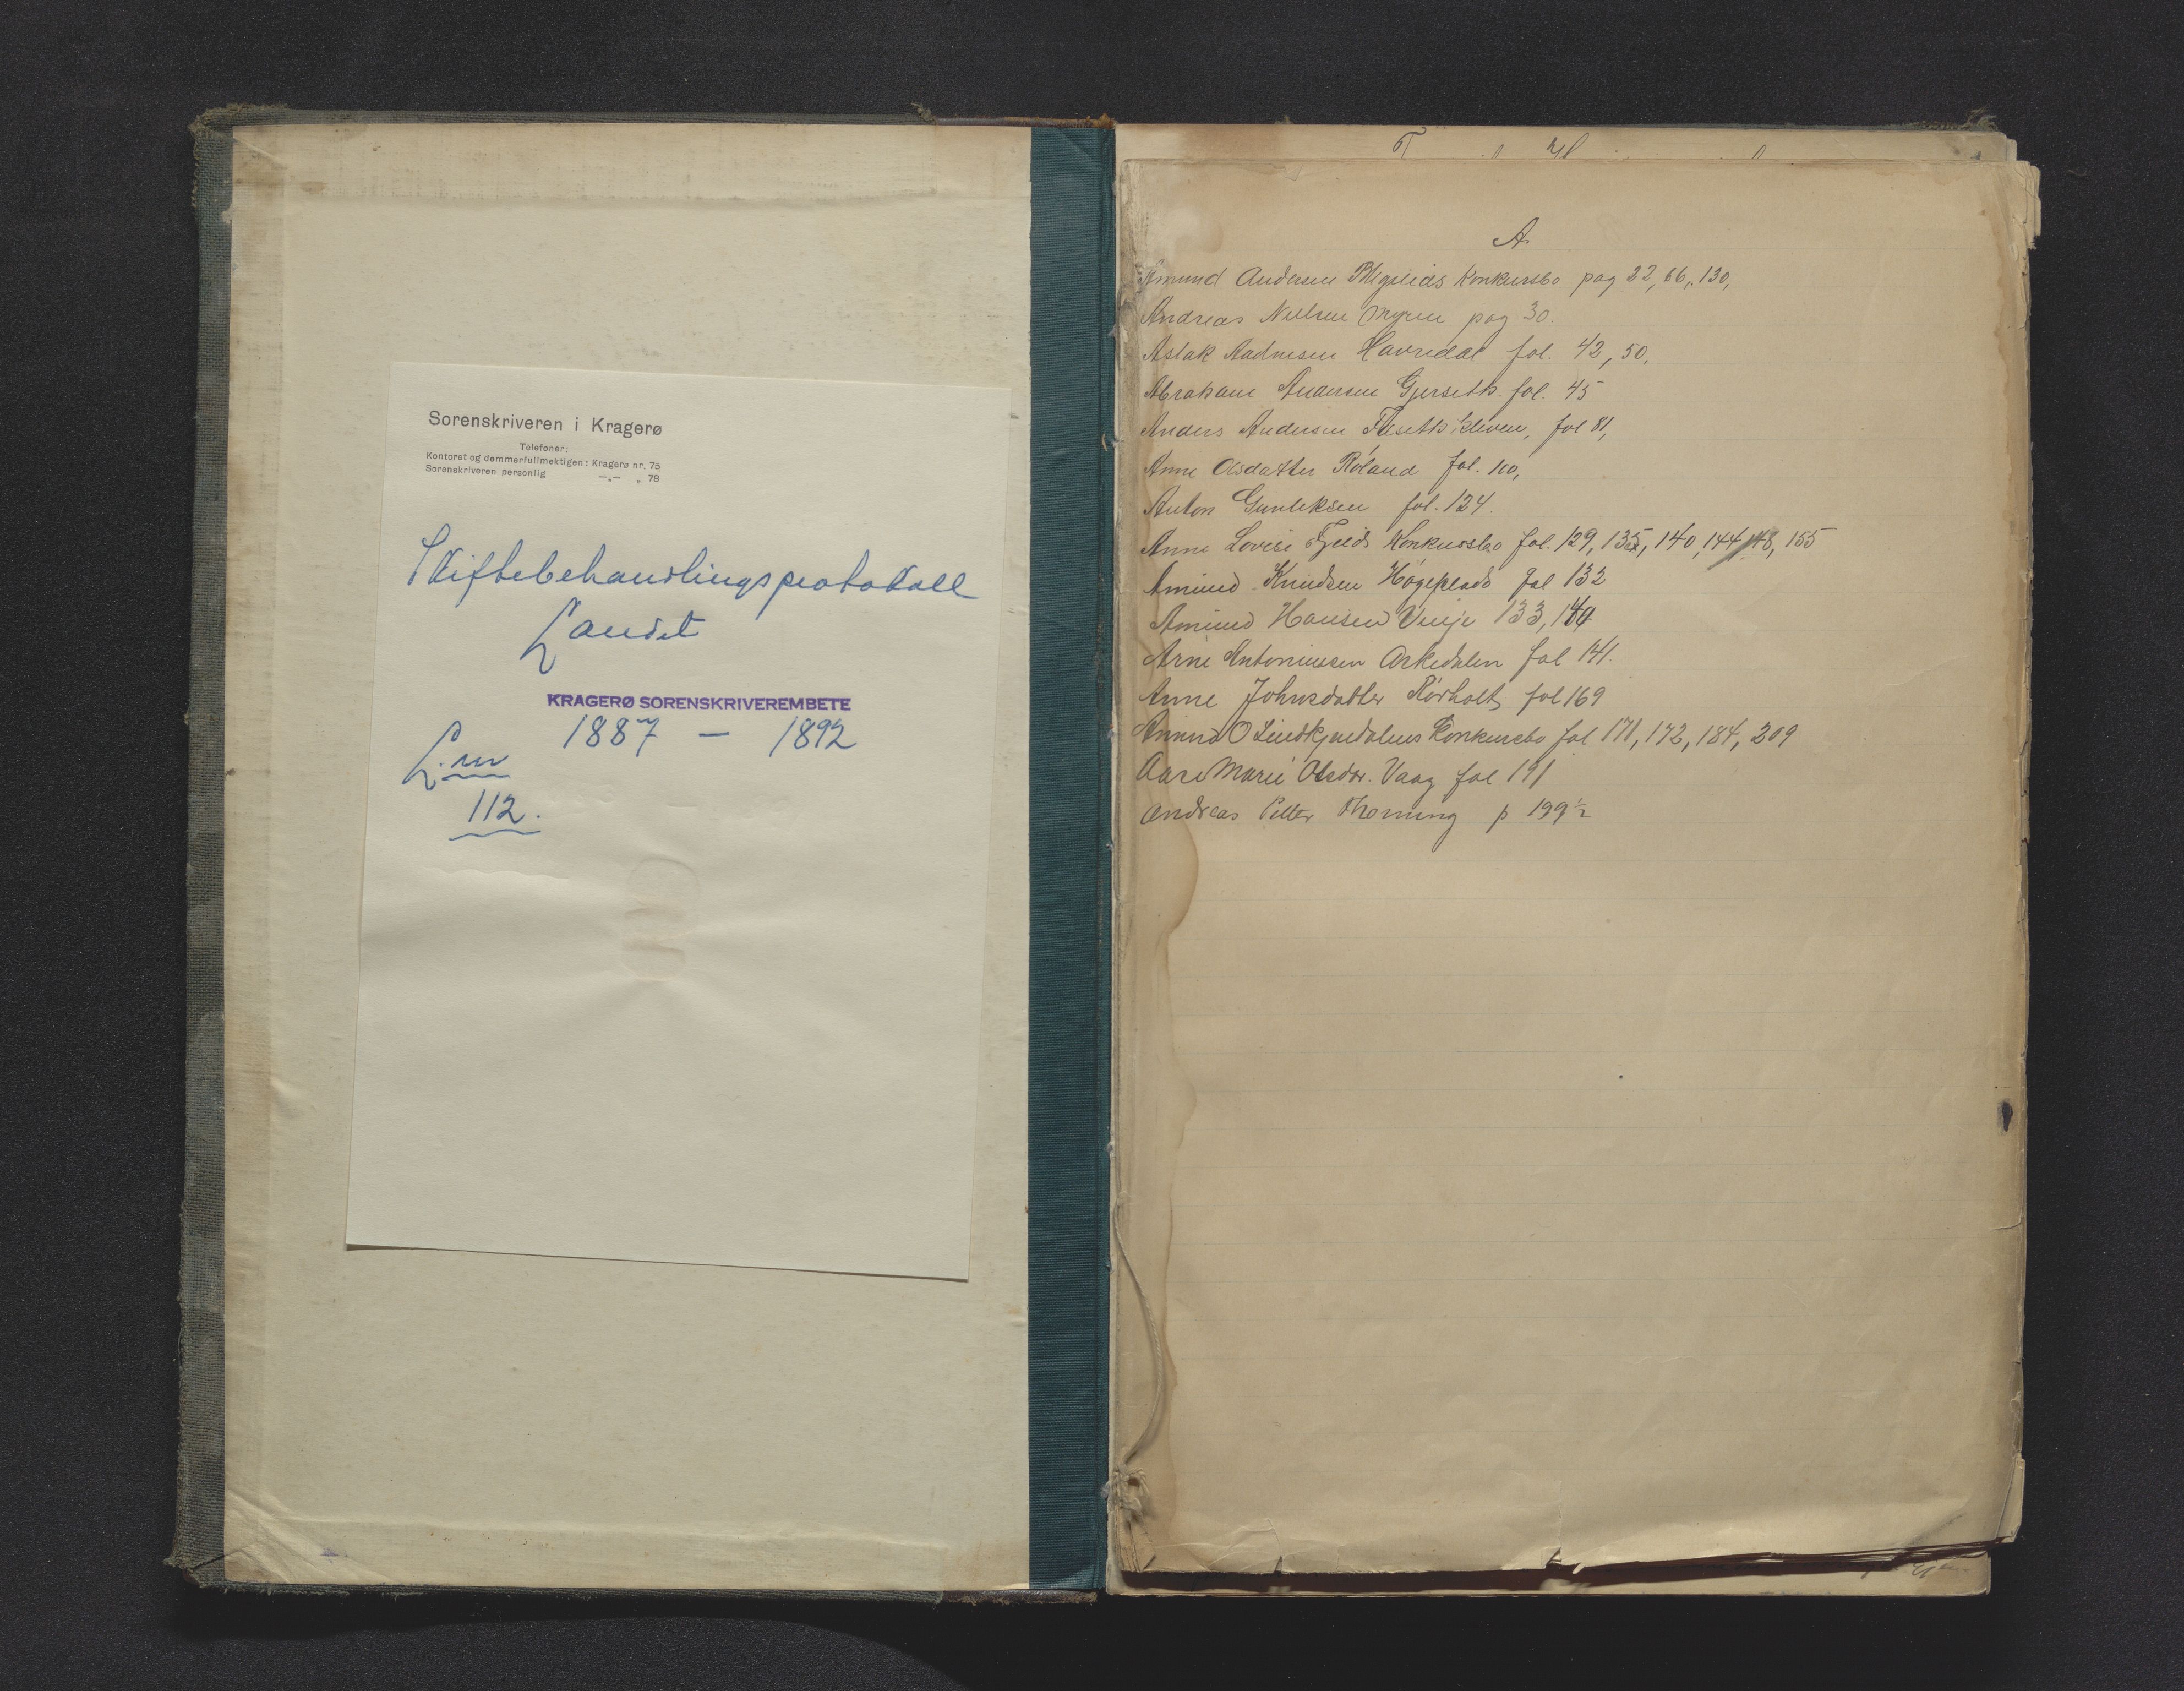 Sorenskriveren i Kragerø
Telefoner:
Kontoret og dommerfullmektigen: Kragerø nr. 75
Sorenskriveren personlig —„— „ 78
Skiftebehandlingsprotokoll
Landet
KRAGERØ SORENSKRIVEREMBETE
1887 — 1892
L. nr
112.
A
Amund Andersen Konkursbo pag 22, 66, 130,
Andreas Nielsen Myren pag 30.
Aslak Aadnesen Havredal fol. 42, 50,
Abraham Andersen Gjerseth. fol. 45
Anders Andersen Kleven, fol 81,
Anne Olsdatter Røland fol. 100,
Anton Gunleksen fol. 124.
Anne Lovise Konkursbo fol. 129, 135, 140, 144, 148, 155
Amund Knudsen Høgeplads fol 132
Amund Hansen Vinje 133,
Arne Antoniussen Askedalen fol 141.
Anne Johnsdatter Rørholt fol 169
Amund O Lindkjendalens Konkursbo fol 171, 172, 184, 209
Aase Marie Olsdr. Vaag fol 191
Andreas Petter Thorning p 199½